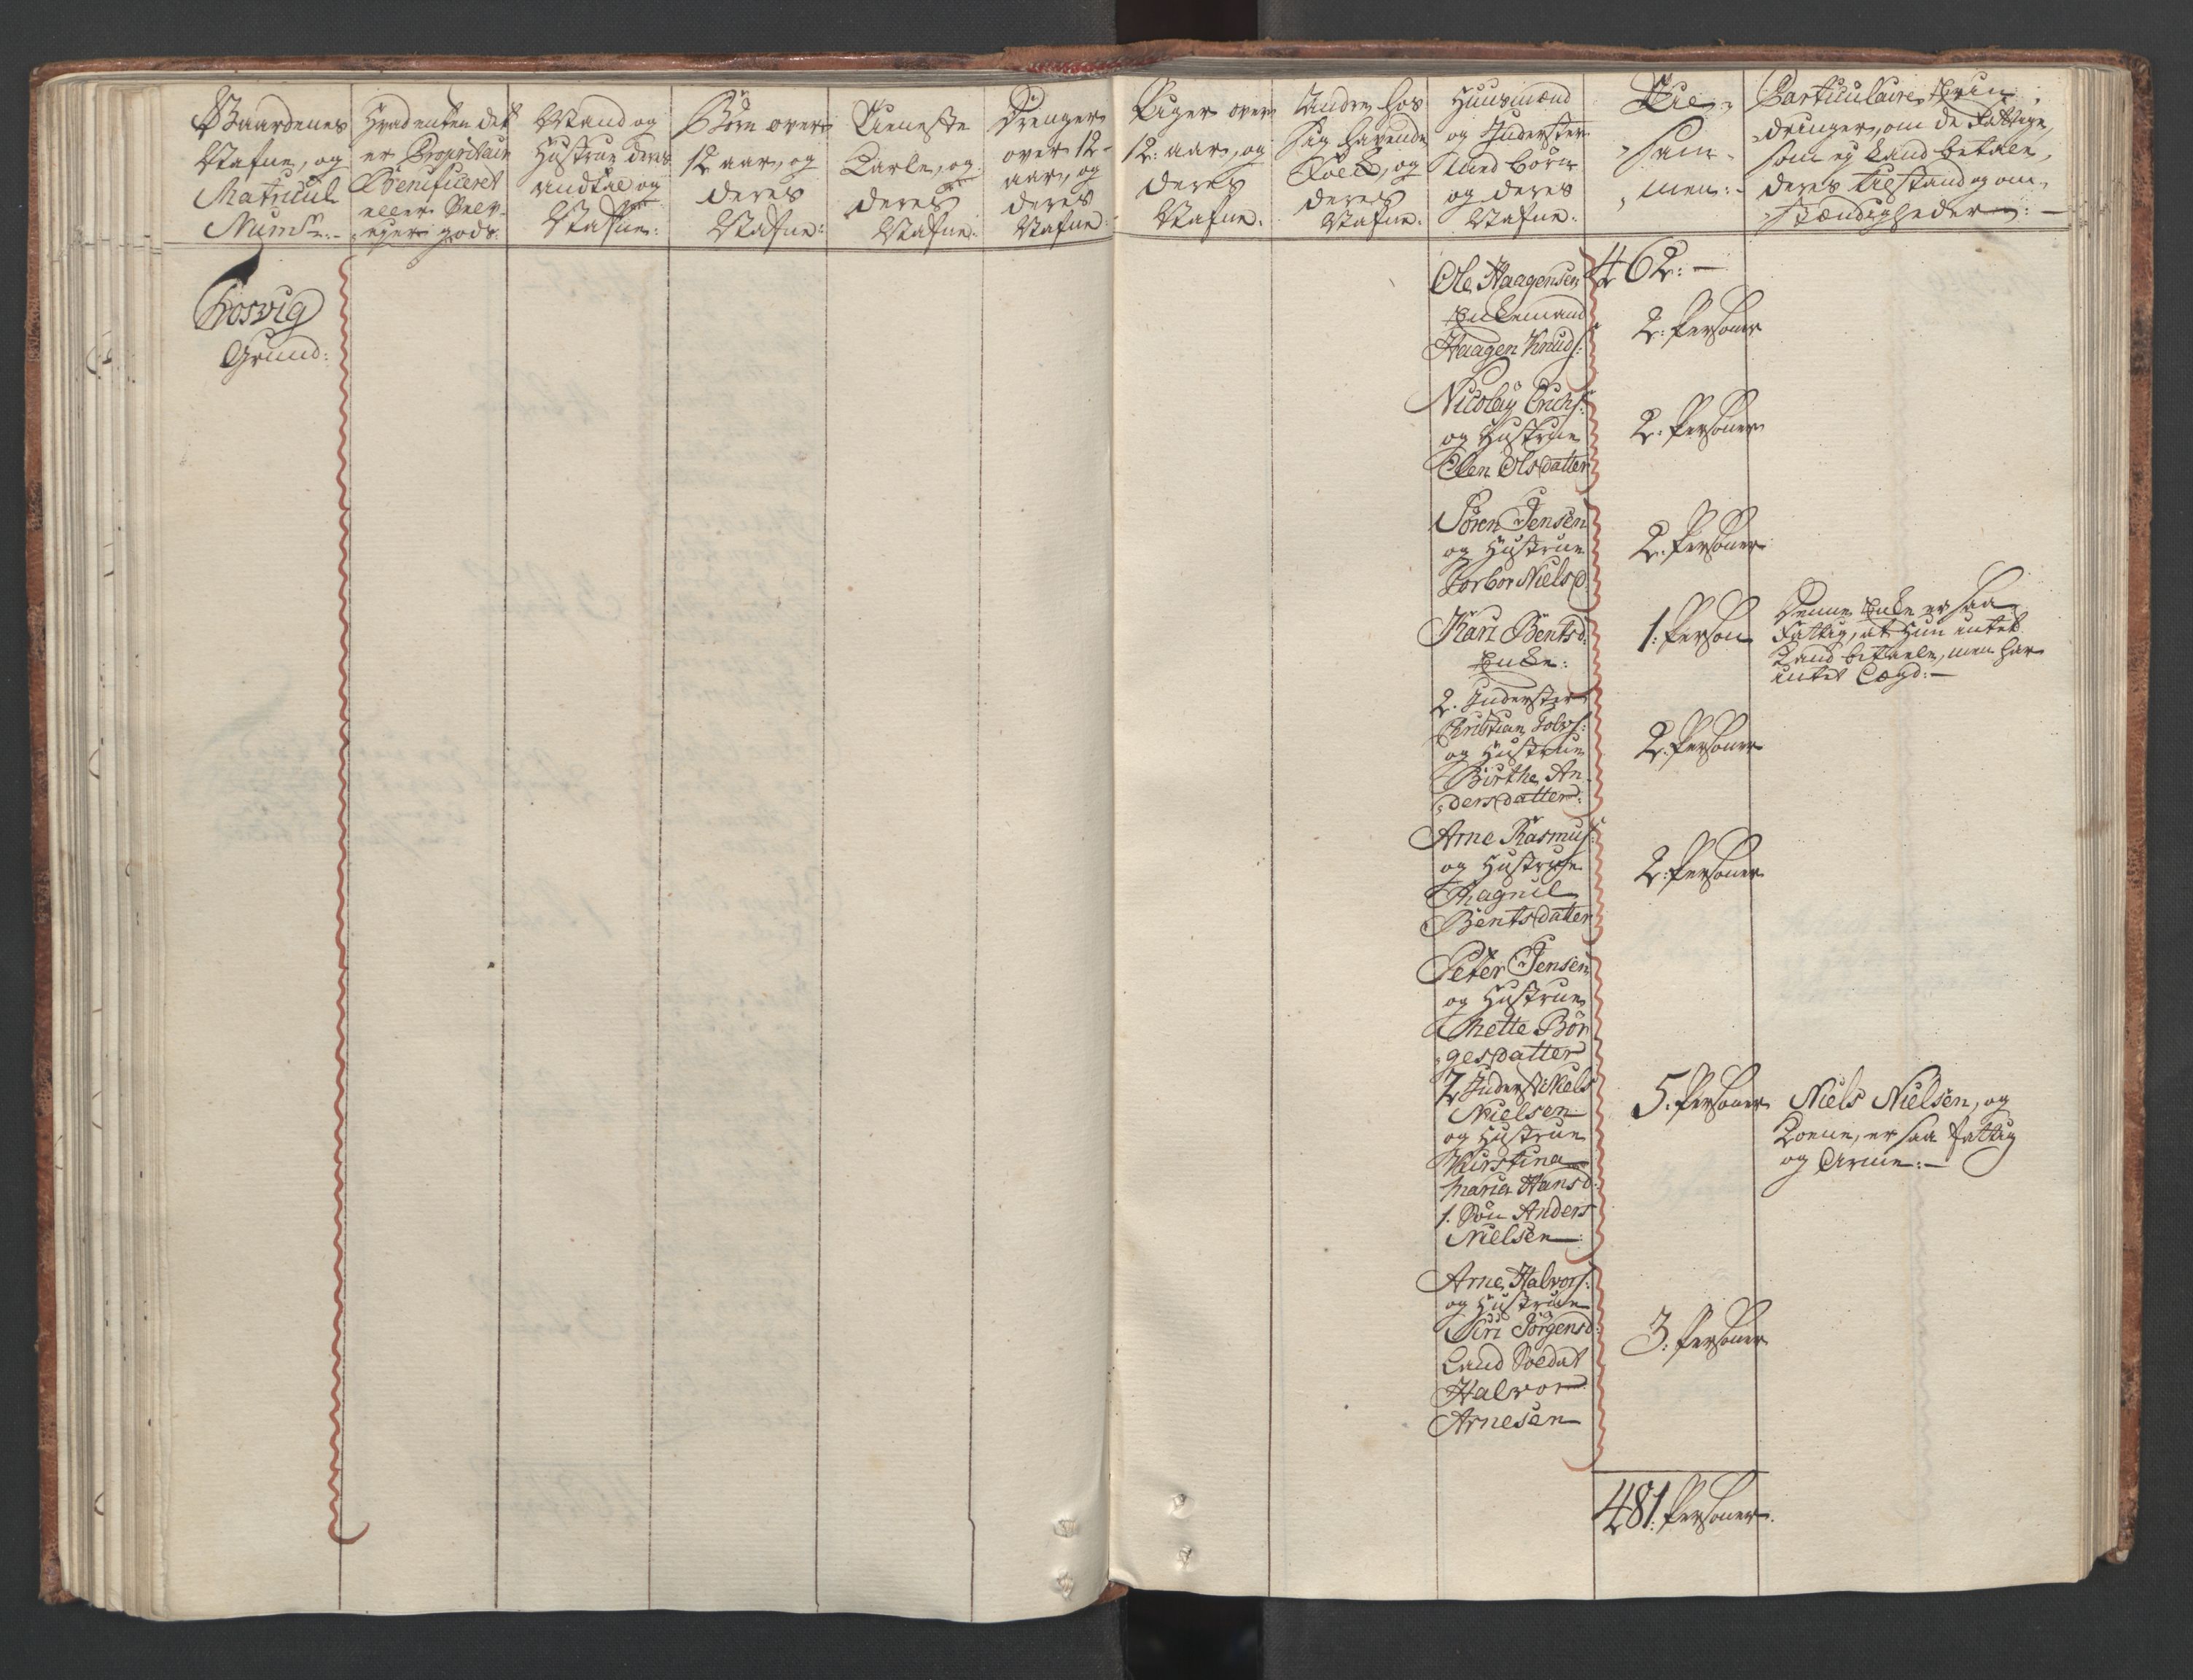 Gaardenes
Nafne, og
Matricul
Num:
Hvad enten det
er Propritair
Benificeret
eller Selv-
ejer gods:
Mand og
Hustrue deres
andtal og
Nafne:
Börn over
12 aar, og
deres
Nafne:
Tieneste
Karle, og
deres
Nafne.
Drenger
over 12
aar, og
deres
Nafne.
Piger over
12: aar, og
deres
Nafne.
Andre hos
sig havende
Folk, og
deres
Nafne.
Huusmænd
og Inderster
med börn
og deres
Nafne.
Til-
sam-
men:
Particulaire Erin-
dringer, om de Fattige,
som ej kand betale,
deres tilstand og om-
stændigheder: —
Trosvig
Grund:
Ole Haagensen
Enkemand
Haagen Knuds:
462: —
2: Personer
Nicolay Erichs:
og Hustrue
Elen Olsdatter
2: Personer
Sören Jensen
og Hustrue
Torbor Nielsd:
2: Personer
Kari Bentsd:
Enke:
1: Person
Denne Enke er saa
Fattig, at hun intet
kand betale, men har
intet Lægd: —
2. Inderster
Christian
og Hustrue
Birthe An-
dersdatter:
2: Personer
Arne Rasmus:
og Hustrue
Ragnil
Bentsdatter
2: Personer
Peter Jensen
og Hustrue
Mette Bör-
gesdatter
2 Inderst Niels
Nielsen
og Hustrue
Kirstina
Maria Hansd:
1. Sön Anders
Nielsen:
5: Personer
Niels Nielsen, og
Kone, er saa fattig
og Arme: —
Arne Halvors:
og Hustrue
Siri Jörgensd:
Land Soldat
Halvor
Arnesen
3: Personer
481: Personer.